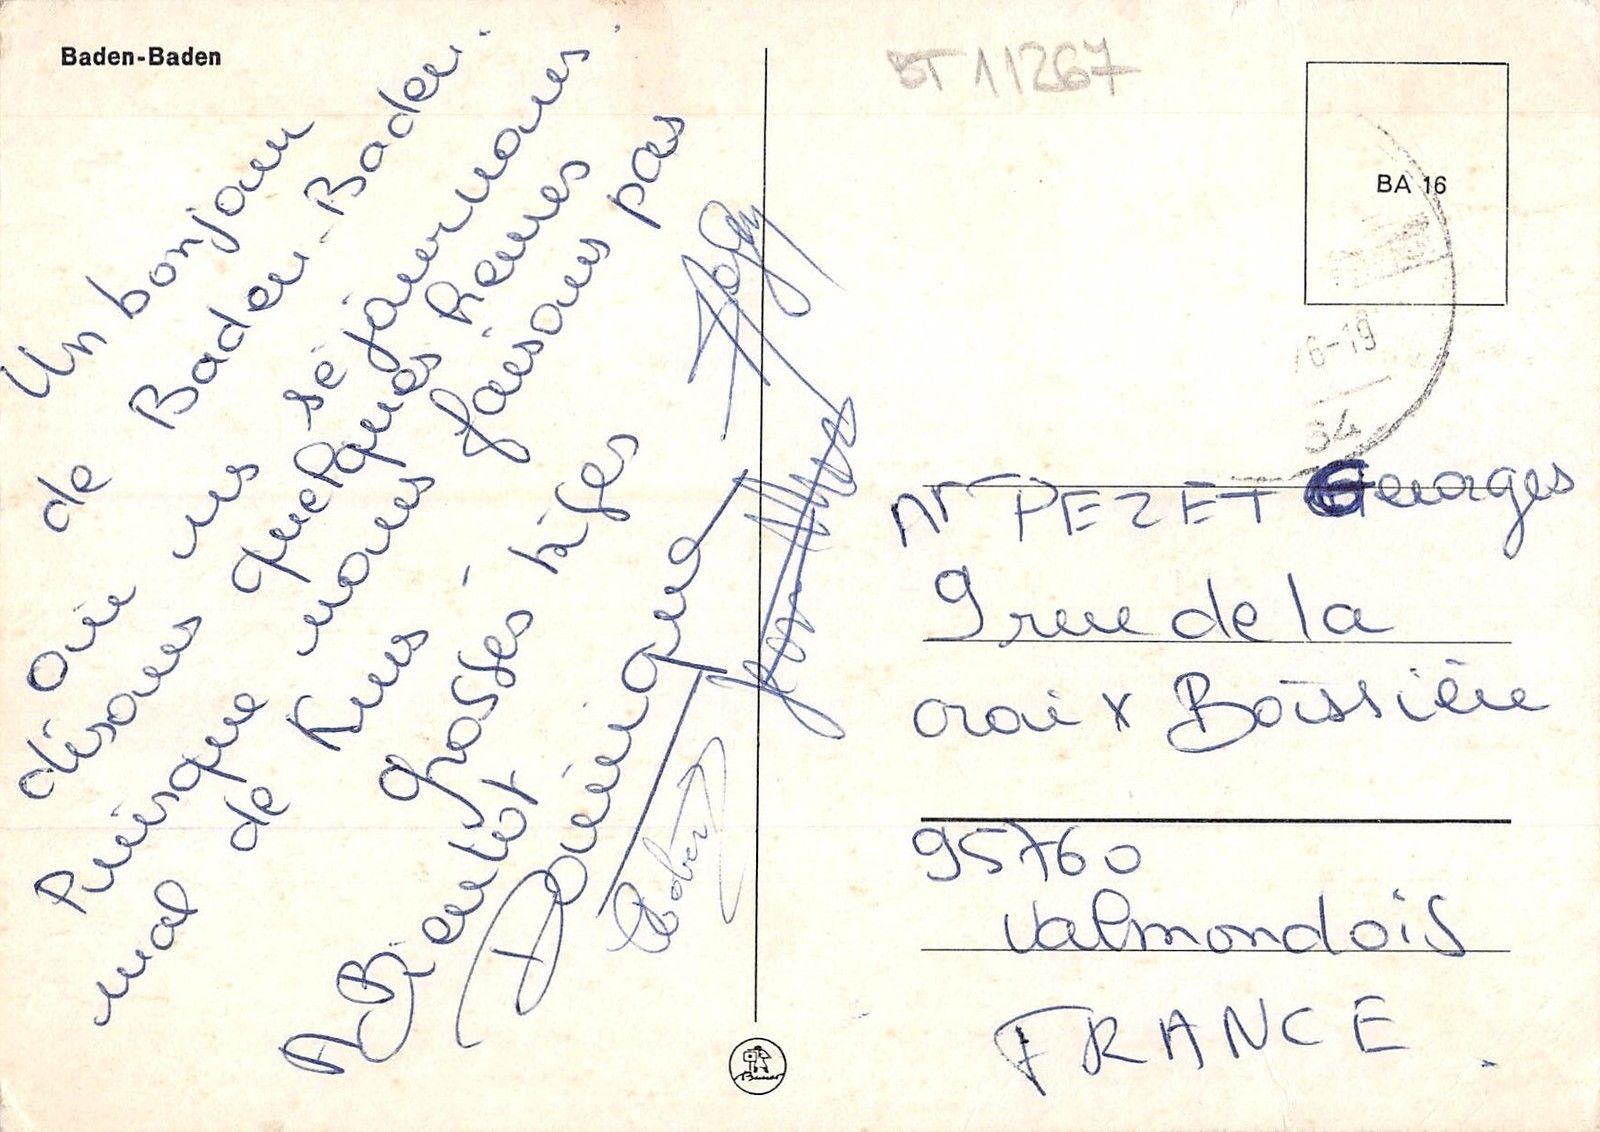 Baden-Baden
Un bonjour
de Baden-Baden.
Où ns séjournons.
disons quelques heures
Puisque nous faisons pas
mal de Kms
Grosses bises
A Bientôt
Dominique
Robert
BT 11267
BA 16
6-19
34
Mr PEZET Georges
9 rue de la
croix Boissière
95760
Valmondois
FRANCE.